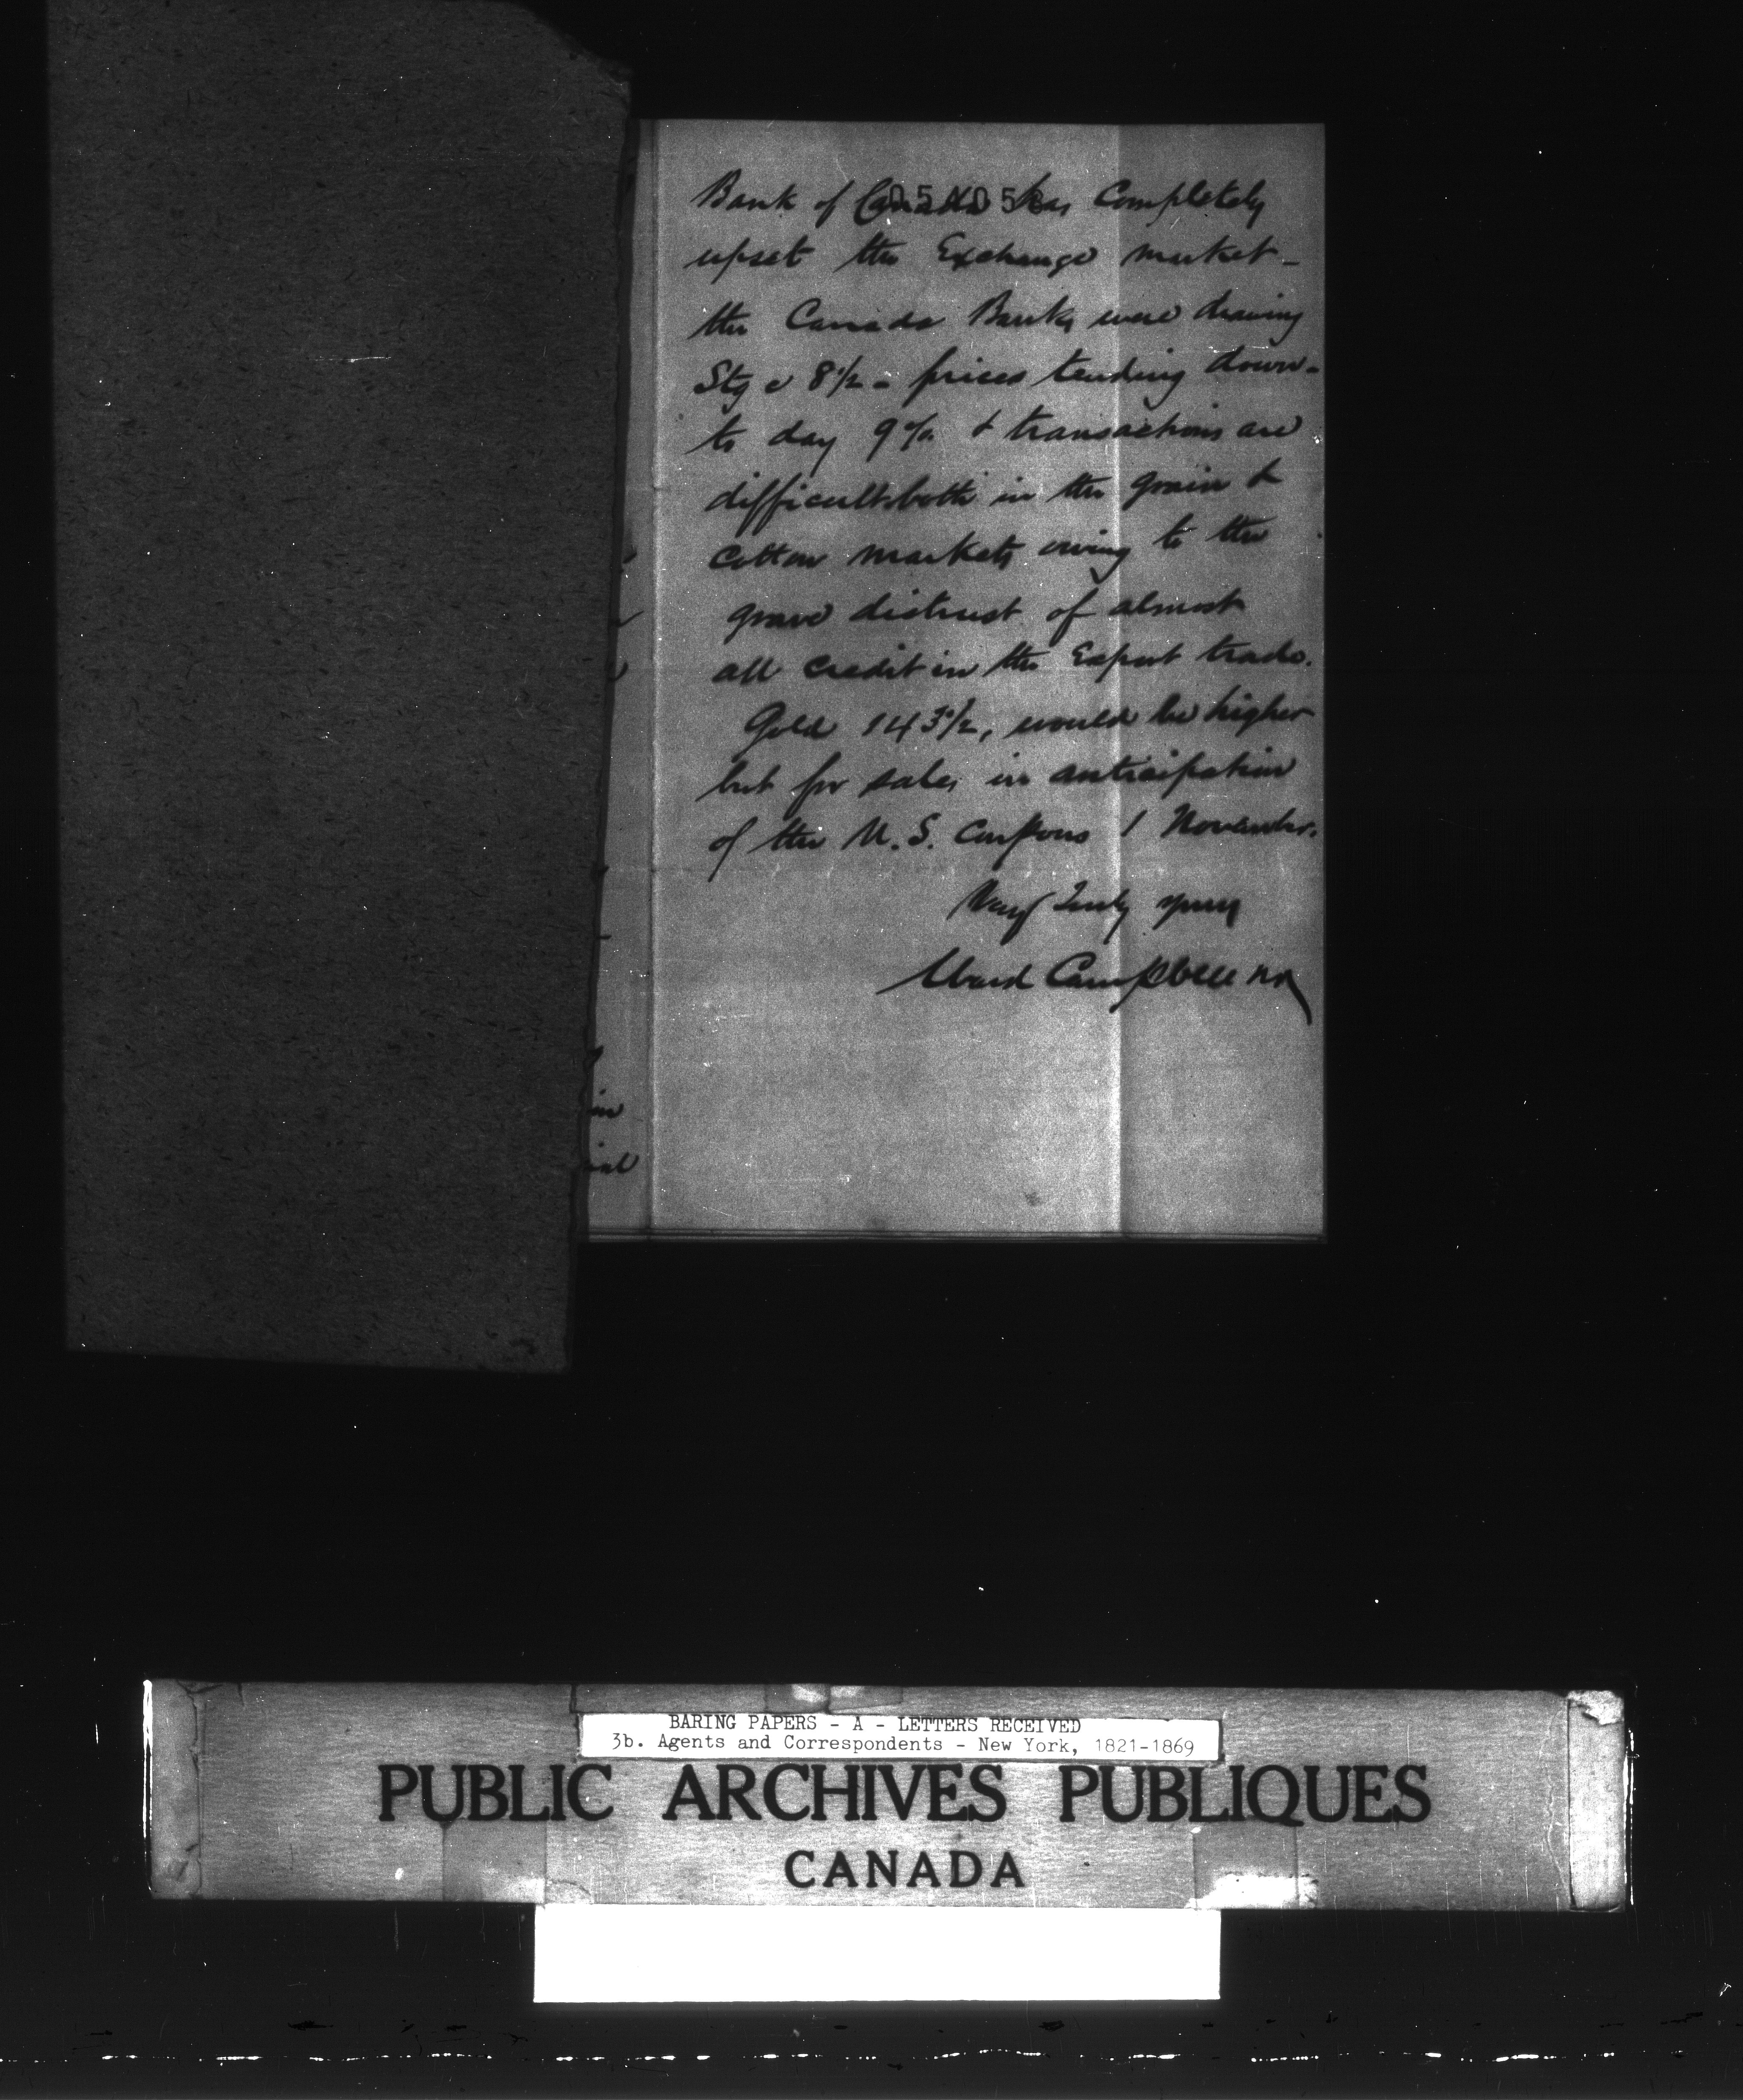 Bank of Canada has Completely
upset the Exchange market -
the Canada Banks were drawing
Stg @ 8 1/2 - prices tending down -
to day 9 % & transactions are
difficult both in the grain &
Cotton markets owing to the
grave distrust of almost
all credit in the Export trade.
Gold 143 1/2, would be higher
but for sales in anticipation
of the U.S. Coupons 1 November.
Very Truly yours
Ward Campbell &Co
in
BARING PAPERS - A - LETTERS RECEIVED
3b. Agents and Correspondents - New York, 1821-1869
PUBLIC ARCHIVES PUBLIQUES
CANADA